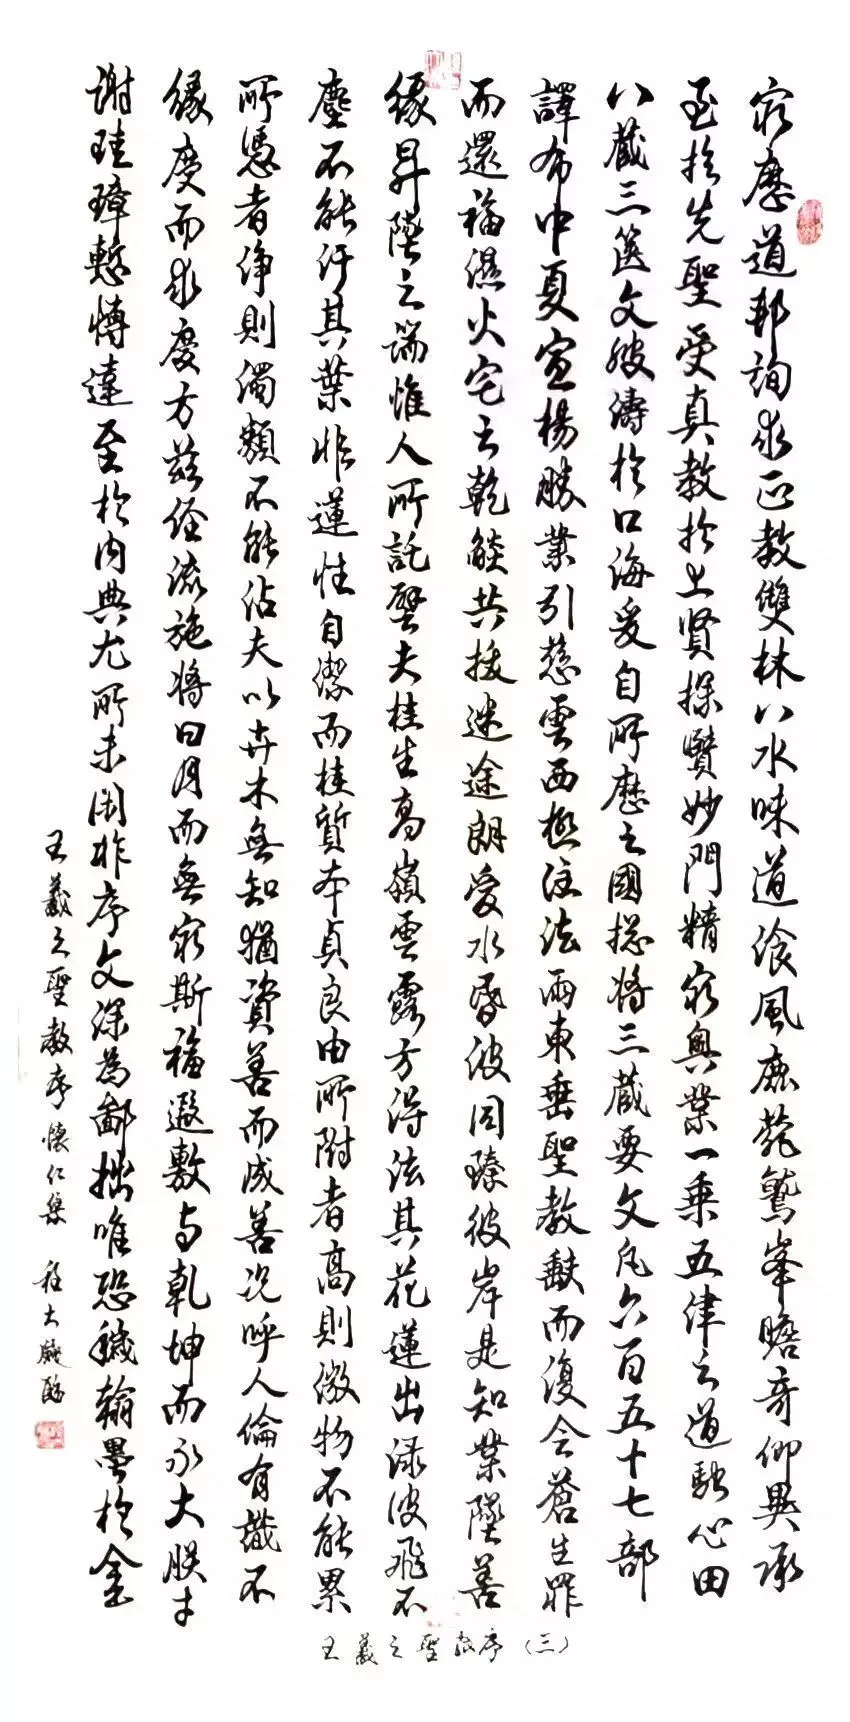 窮歷道邦詢求正教雙林八水味道飡風鹿菀鷲峯瞻奇仰異承
至於先聖受真教於上賢探賾妙門精窮奧業一乘五律之道馳心田
八藏三篋文波濤於口海爰自所歷之國總將三藏要文凡六百五十七部
譯布中夏宣楊勝業引慈雲西極注法雨東垂聖教缺而復全蒼生罪
而還福濕火宅之乾燄共拔迷途朗愛水昏波同臻彼岸是知業墜善
緣昇墜之端惟人所託譬夫桂生高嶺雲露方得泫其花蓮出淥波飛不
塵不能汙其葉非蓮性自潔而桂質本貞良由所附者高則微物不能累
所憑者淨則濁類不能沾夫以卉木無知猶資善而成善況呼人倫有識不
緣慶而求慶方茲經流施將日月而無窮斯福遐敷与乾坤而永大朕才
謝珪璋慙博達至於內典尤所未閑昨序文深為鄙拙唯恐穢翰墨於金
王羲之聖教序懷仁集 程大
王羲之聖教序（三）